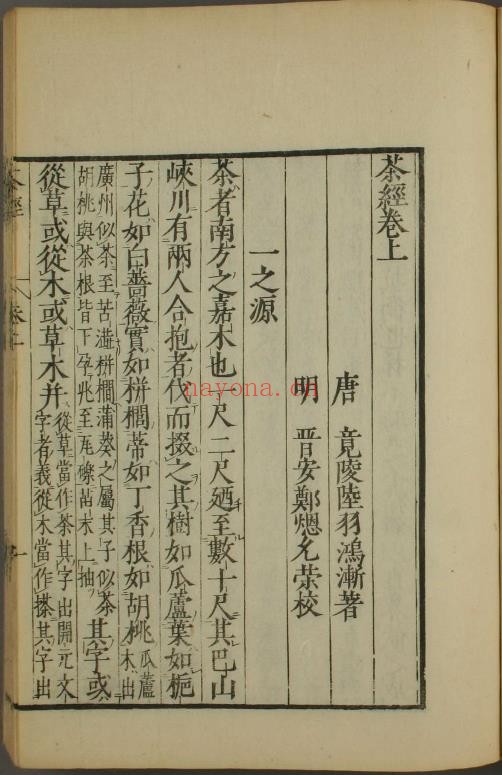 茶經卷上
唐 竟陵陸羽鴻漸著
明 晋安鄭熜允荣校
一之源
茶者南方之嘉木也一尺二尺廼至數十尺其巴山
峽川有兩人合抱者伐而掇之其樹如瓜蘆葉如梔
子花如白薔薇實如栟櫚蒂如丁香根如胡桃瓜蘆木出
廣州似茶至苦澁栟櫚蒲葵之属其子似茶
胡桃與茶根皆下孕兆至瓦礫苗木上抽其字或
從草或從木或草木并從草當作茶其字出開元文
字者義從木當作搽其字出
茶經
nayona.cn